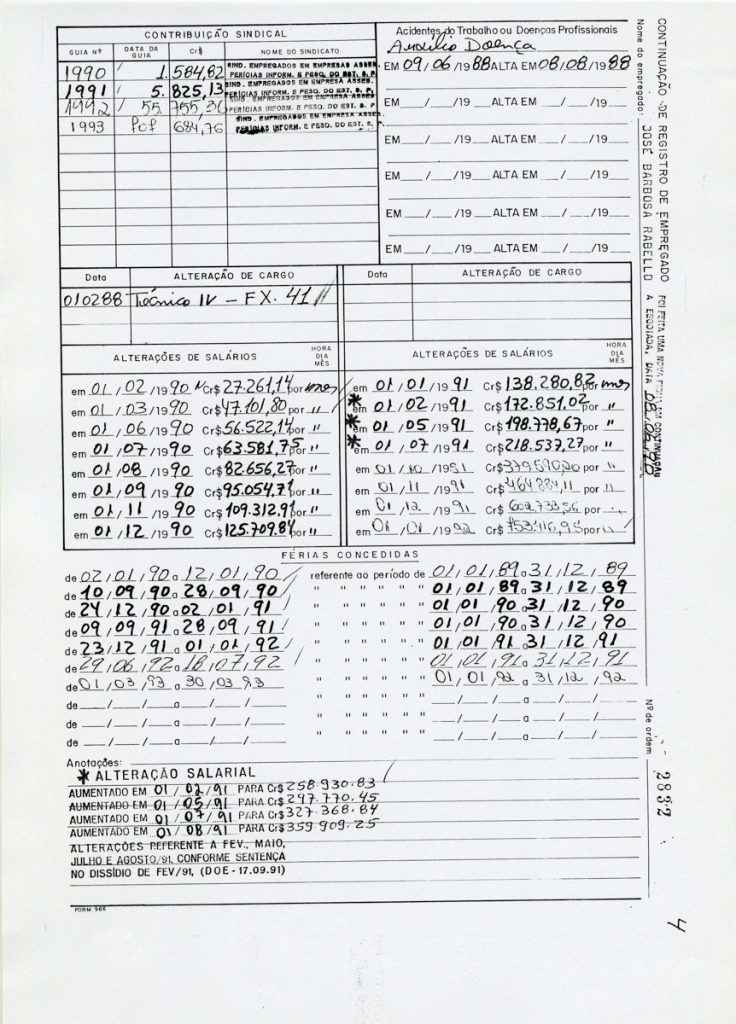 CONTRIBUIÇÃO SINDICAL
GUIA Nº DATA DA GUIA Cr$ NOME DO SINDICATO
1990 / 1.584,82 SIND. EMPREGADOS EM EMPRESAS ASSES. PERÍCIAS INFORM. E PESQ. DO EST. S. P.
1991 / 5.825,13 SIND. EMPREGADOS EM EMPRESA ASSES. PERÍCIAS INFORM. E PESQ. DO EST. S. P.
1992 / 55.755,36 SIND. EMPREGADOS EM EMPRESA ASSES. PERÍCIAS INFORM. E PESQ. DO EST. S. P
1993 684,76 SIND. EMPREGADOS EM EMPRESA ASSES. PERÍCIAS INFORM. E PESQ. DO EST. S. P.
Acidentes do Trabalho ou Doenças Profissionais
Auxílio Doença
EM 09/06/1988 ALTA EM 08/08/1988
EM ___/___/19___ ALTA EM ___/___/19___
EM ___/___/19___ ALTA EM ___/___/19___
EM ___/___/19___ ALTA EM ___/___/19___
EM ___/___/19___ ALTA EM ___/___/19___
EM ___/___/19___ ALTA EM ___/___/19___
Data ALTERAÇÃO DE CARGO
010288 Técnico IV - FX. 41
Data ALTERAÇÃO DE CARGO
ALTERAÇÕES DE SALÁRIOS HORA DIA MÊS
em 01/02/1990 Cr$ 27.261,14 por mes
em 01/03/1990 Cr$ 47.101,80 por "
em 01/06/1990 Cr$ 56.522,14 por "
em 01/07/1990 Cr$ 63.581,75 por "
em 01/08/1990 Cr$ 82.656,27 por "
em 01/09/1990 Cr$ 95.054,71 por "
em 01/11/1990 Cr$ 109.312,91 por "
em 01/12/1990 Cr$ 125.709,84 por "
ALTERAÇÕES DE SALÁRIOS HORA DIA MÊS
em 01/01/1991 Cr$ 138.280,82 por mes
* em 01/02/1991 Cr$ 172.851,02 por "
* em 01/05/1991 Cr$ 198.778,67 por "
* em 01/07/1991 Cr$ 218.537,27 por "
em 01/10/1991 Cr$ 379.590,20 por "
em 01/11/1991 Cr$ 464.884,11 por "
em 01/12/1991 Cr$ 602.733,56 por "
em 01/01/1992 Cr$ 753.416,95 por "
FÉRIAS CONCEDIDAS
de 02/01/90 a 12/01/90 referente ao período de 01/01/89 a 31/12/89
de 10/09/90 a 28/09/90 " " " " " 01/01/89 a 31/12/89
de 24/12/90 a 02/01/91 " " " " " 01/01/90 a 31/12/90
de 09/09/91 a 28/09/91 " " " " " 01/01/90 a 31/12/90
de 23/12/91 a 01/01/92 " " " " " 01/01/91 a 31/12/91
de 29/06/92 a 18/07/92 " " " " " 01/01/91 a 31/12/91
de 01/03/93 a 30/03/93 " " " " " 01/01/92 a 31/12/92
de ___/___/___ a ___/___/___ " " " " " ___/___/___ a ___/___/___
de ___/___/___ a ___/___/___ " " " " " ___/___/___ a ___/___/___
de ___/___/___ a ___/___/___ " " " " " ___/___/___ a ___/___/___
Anotações:
* ALTERAÇÃO SALARIAL
AUMENTADO EM 01/02/91 PARA Cr$ 258.930.83
AUMENTADO EM 01/05/91 PARA Cr$ 297.770.45
AUMENTADO EM 01/07/91 PARA Cr$ 327.368.84
AUMENTADO EM 01/08/91 PARA Cr$ 359.909.25
ALTERAÇÕES REFERENTE A FEV., MAIO,
JULHO E AGOSTO/91, CONFORME SENTENÇA
NO DISSÍDIO DE FEV/91, (DOE - 17.09.91)
FORM. 966
CONTINUAÇÃO DE REGISTRO DE EMPREGADO
FOI FEITA UMA NOVA FICHA EM CONTINUAÇÃO
Nome do empregado: JOSÉ BARBOSA RABELLO
A ESGOTADA, DATA
Nº de ordem 2832
4